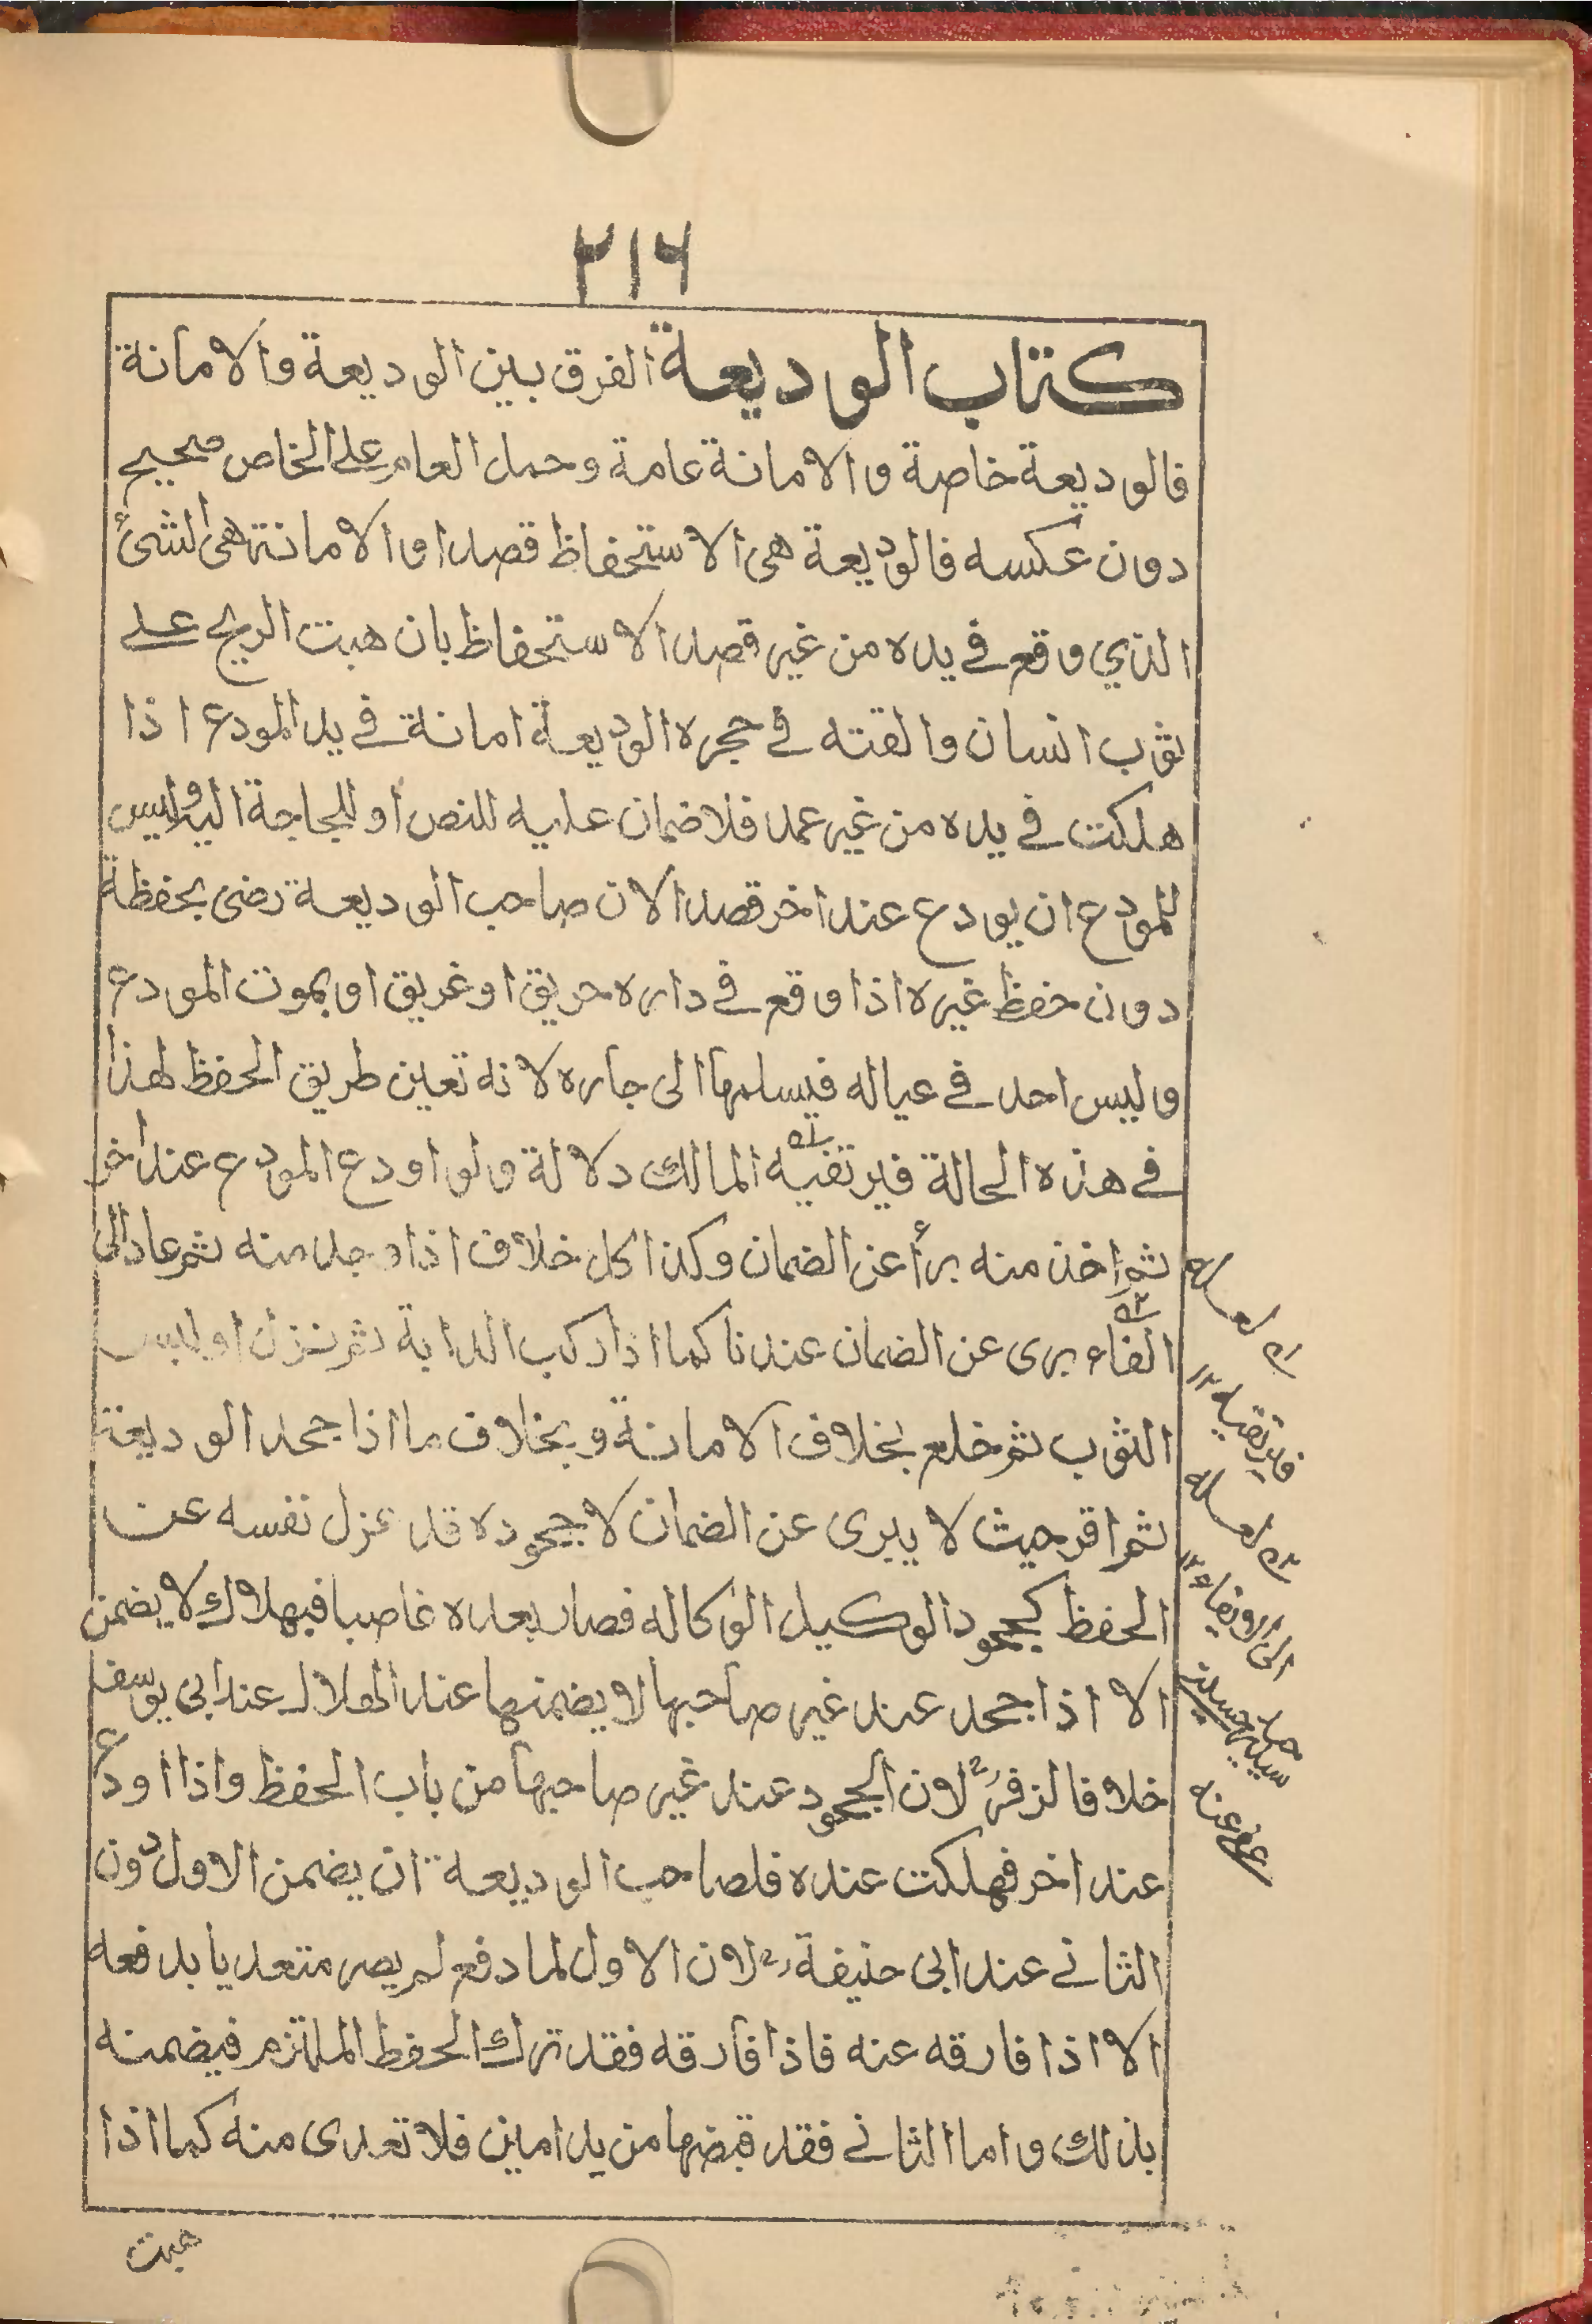 ٢١٦
كتاب الوديعة الفرق بين الوديعة والامانة
فالوديعة خاصة والامانة عامة وحمل العام على الخاص صحيح
دون عكسه فالوديعة هى الاستحفاظ قصدا والامانة هى الشئ
الذي وقع في يده من غير قصد الاستحفاظ بان هبت الريح على
ثوب انسان والقته في حجره الوديعة امانة في يد المودع اذا
هلكت في يده من غير عمد فلا ضمان عليه للنص او للحاجة اليه وليس
للمودع ان يودع عند اخر قصدا لان صاحب الوديعة رضى بحفظه
دون حفظ غيره اذا وقع في داره حريق او غريق او بموت المودع
وليس احد في عياله فيسلمها الى جاره لانه تعين طريق الحفظ لهذا
في هذه الحالة فيرتفيه المالك دلالة ولو اودع المودع عند اخر
ثم اخذ منه برأ عن الضمان وكذا كل خلاف اذا وجد منه ثم عاد الى
الفاء برى عن الضمان عندنا كما اذا ركب الدابة ثم نزل او لبس
الثوب ثم خلع بخلاف الامانة وبخلاف ما اذا جحد الوديعة
ثم اقر حيث لا يبرى عن الضمان لا جحوده قد عزل نفسه عن
الحفظ كجحود الوكيل الوكاله فصار بعده غاصبا فبهلاك لا يضمن
الا اذا جحد عند غير صاحبها لا يضمنها عند الهلاك عند ابى يوسف
خلافا لزفرؒ لان الجحود عند غير صاحبها من باب الحفظ واذا اودع
عند اخر فهلكت عنده فلصاحب الوديعة ان يضمن الاول دون
الثاني عند ابى حنيفةؒ لان الاول لما دفع لم يصر متعديا بدفعه
الا اذا فارقه عنه فاذا فارقه فقد ترك الحفظ الملتزم فيضمنه
بذلك واما الثاني فقد قبضها من يد امين فلا تعدى منه كما اذا
هبت
فيرتضيه ١٢
عفى عنه